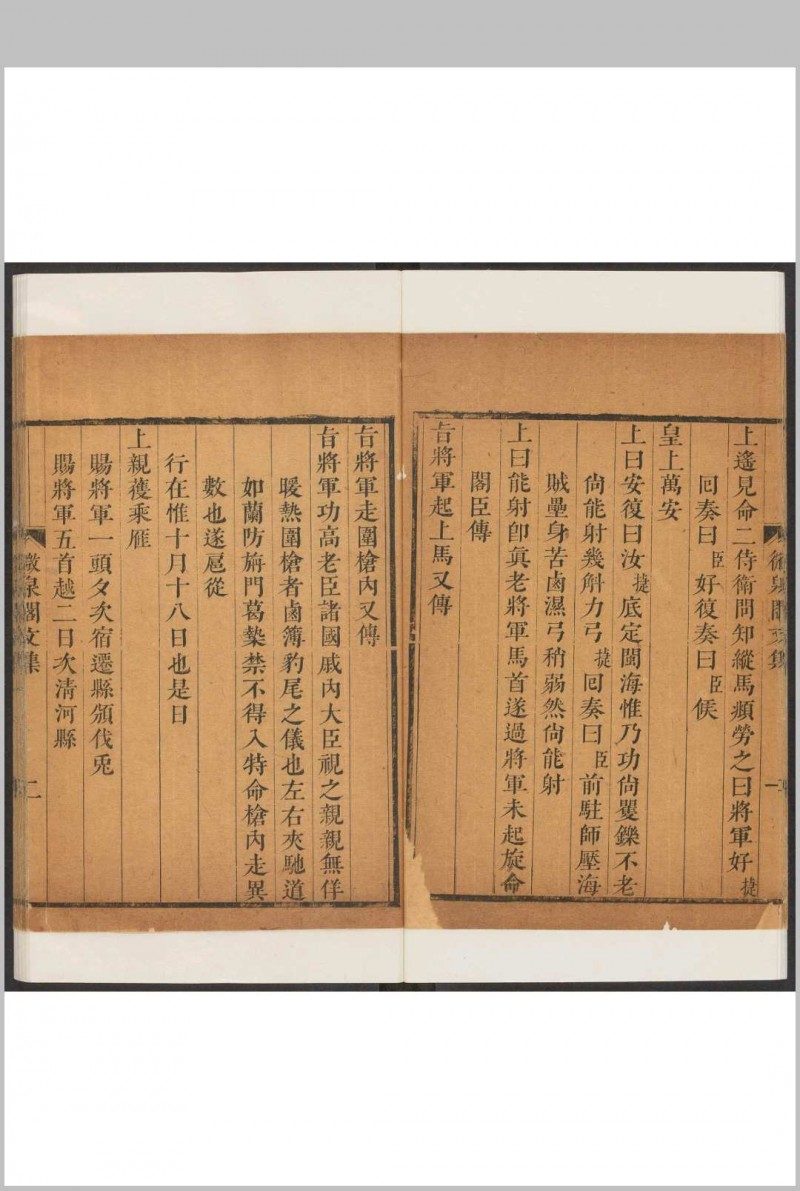 上遙見命二侍衛問知縱馬頻勞之曰將軍好捷
囘奏曰臣好復奏曰臣候
皇上萬安
上曰安復曰汝捷底定閩海惟乃功尙矍鑠不老
尙能射幾斛力弓捷囘奏曰臣前駐師壓海
賊壘身苦鹵濕弓稍弱然尙能射
上曰能射卽眞老將軍馬首遂過將軍未起旋命
閣臣傳
旨將軍起上馬又傳
旨將軍走圍槍內又傳
旨將軍功高老臣諸國戚內大臣視之親親無佯
暖熱圍槍者鹵簿豹尾之儀也左右夾馳道
如蘭防旃門葛褺禁不得入特命槍內走異
數也遂扈從
行在惟十月十八日也是日
上親獲乘雁
賜將軍一頭夕次宿遷縣頒伐兎
賜將軍五首越二日次淸河縣
泉閣文集
二